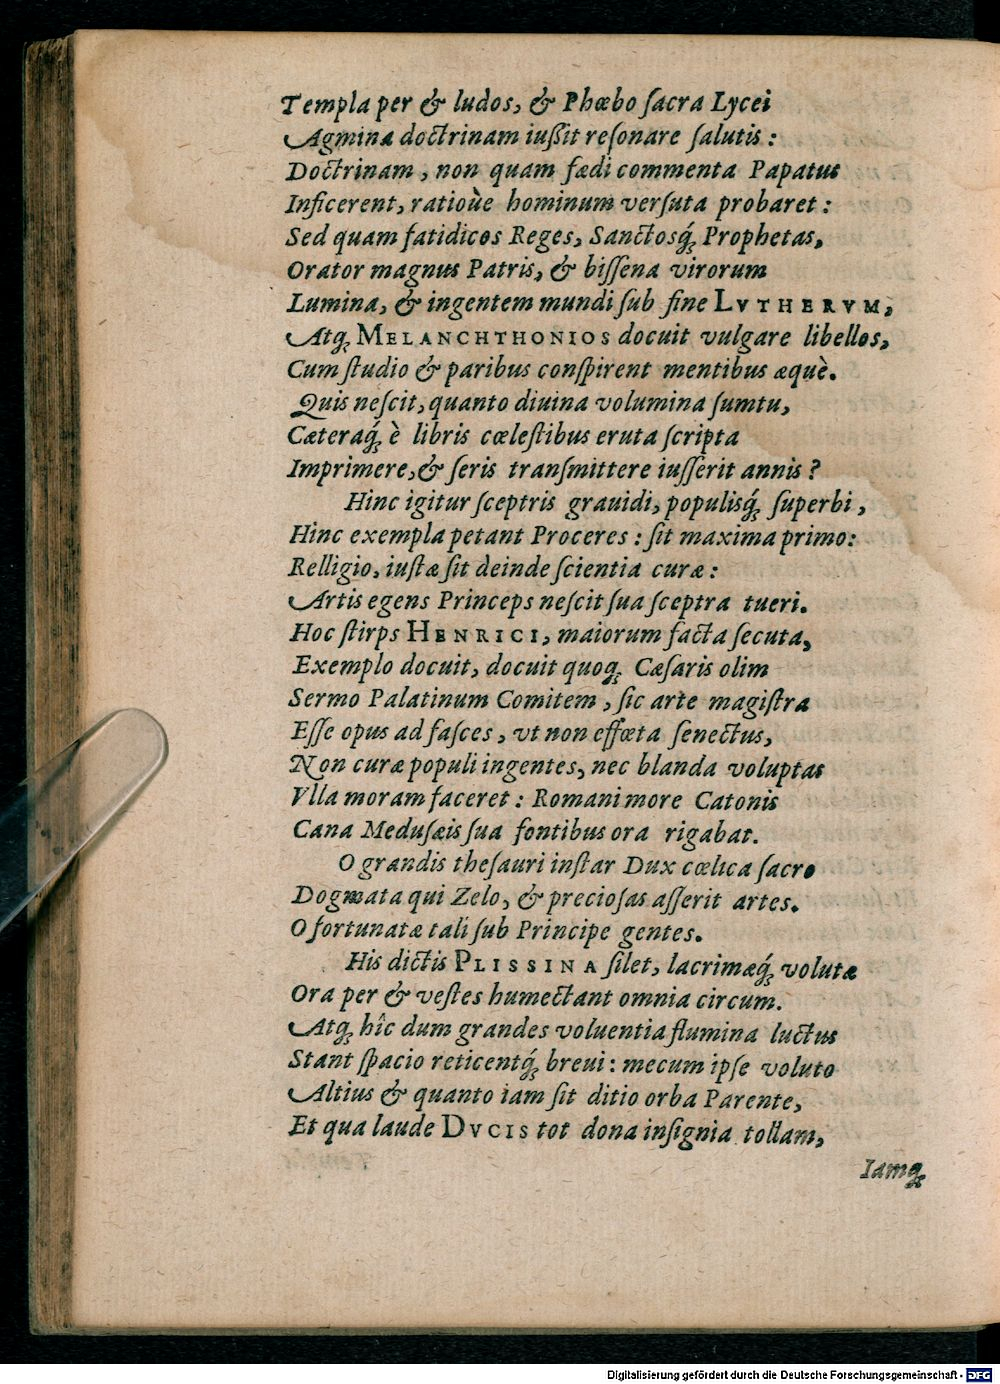 Templa per & ludos, & Phœbo ſacra Lycei
Agmina doctrinam iußit reſonare ſalutis:
Doctrinam, non quam fædi commenta Papatus
Inficerent, ratioùe hominum verſuta probaret:
Sed quam fatidicos Reges, Sanctosq́; Prophetas,
Orator magnus Patris, & biſſena virorum
Lumina, & ingentem mundi ſub fine LVTHERVM,
Atq; MELANCHTHONIOS docuit vulgare libellos,
Cum ſtudio & paribus conſpirent mentibus æquè.
Quis neſcit, quanto diuina volumina ſumtu,
Cæteraq́; è libris cœleſtibus eruta ſcripta
Imprimere, & ſeris tranſmittere iuſſerit annis?
Hinc igitur ſceptris grauidi, populisq́; ſuperbi,
Hinc exempla petant Proceres: ſit maxima primo:
Relligio, iuſtæ ſit deinde ſcientia curæ:
Artis egens Princeps neſcit ſua ſceptra tueri.
Hoc ſtirps HENRICI, maiorum facta ſecuta,
Exemplo docuit, docuit quoq; Cæſaris olim
Sermo Palatinum Comitem, ſic arte magiſtra
Eſſe opus ad faſces, vt non effœta ſenectus,
Non curæ populi ingentes, nec blanda voluptas
Vlla moram faceret: Romani more Catonis
Cana Meduſæis ſua fontibus ora rigabat.
O grandis theſauri inſtar Dux cœlica ſacro
Dogmata qui Zelo, & precioſas aſſerit artes.
O fortunatæ tali ſub Principe gentes.
His dictis PLISSINA ſilet, lacrimæq́; volutæ
Ora per & veſtes humectant omnia circum.
Atq; hîc dum grandes voluentia flumina luctus
Stant ſpacio reticentq́; breui: mecum ipſe voluto
Altius & quanto iam ſit ditio orba Parente,
Et qua laude DVCIS tot dona inſignia tollam,
Iamq;
Digitalisierung gefördert durch die Deutsche Forschungsgemeinschaft - DFG